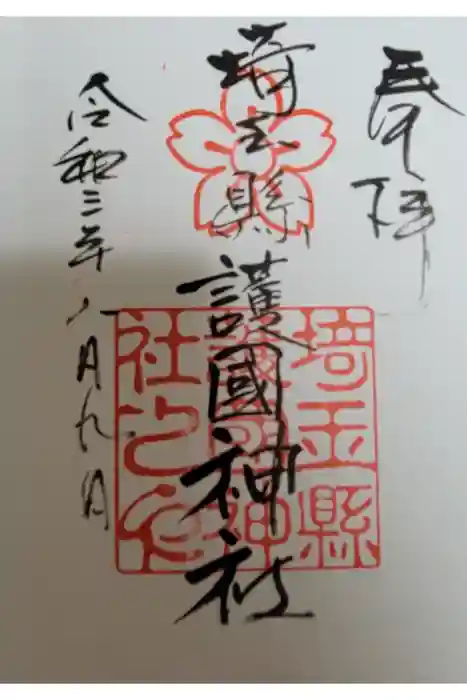 奉拝
埼玉縣護國神社
埼玉縣
護國神
社之印
令和三年八月九日